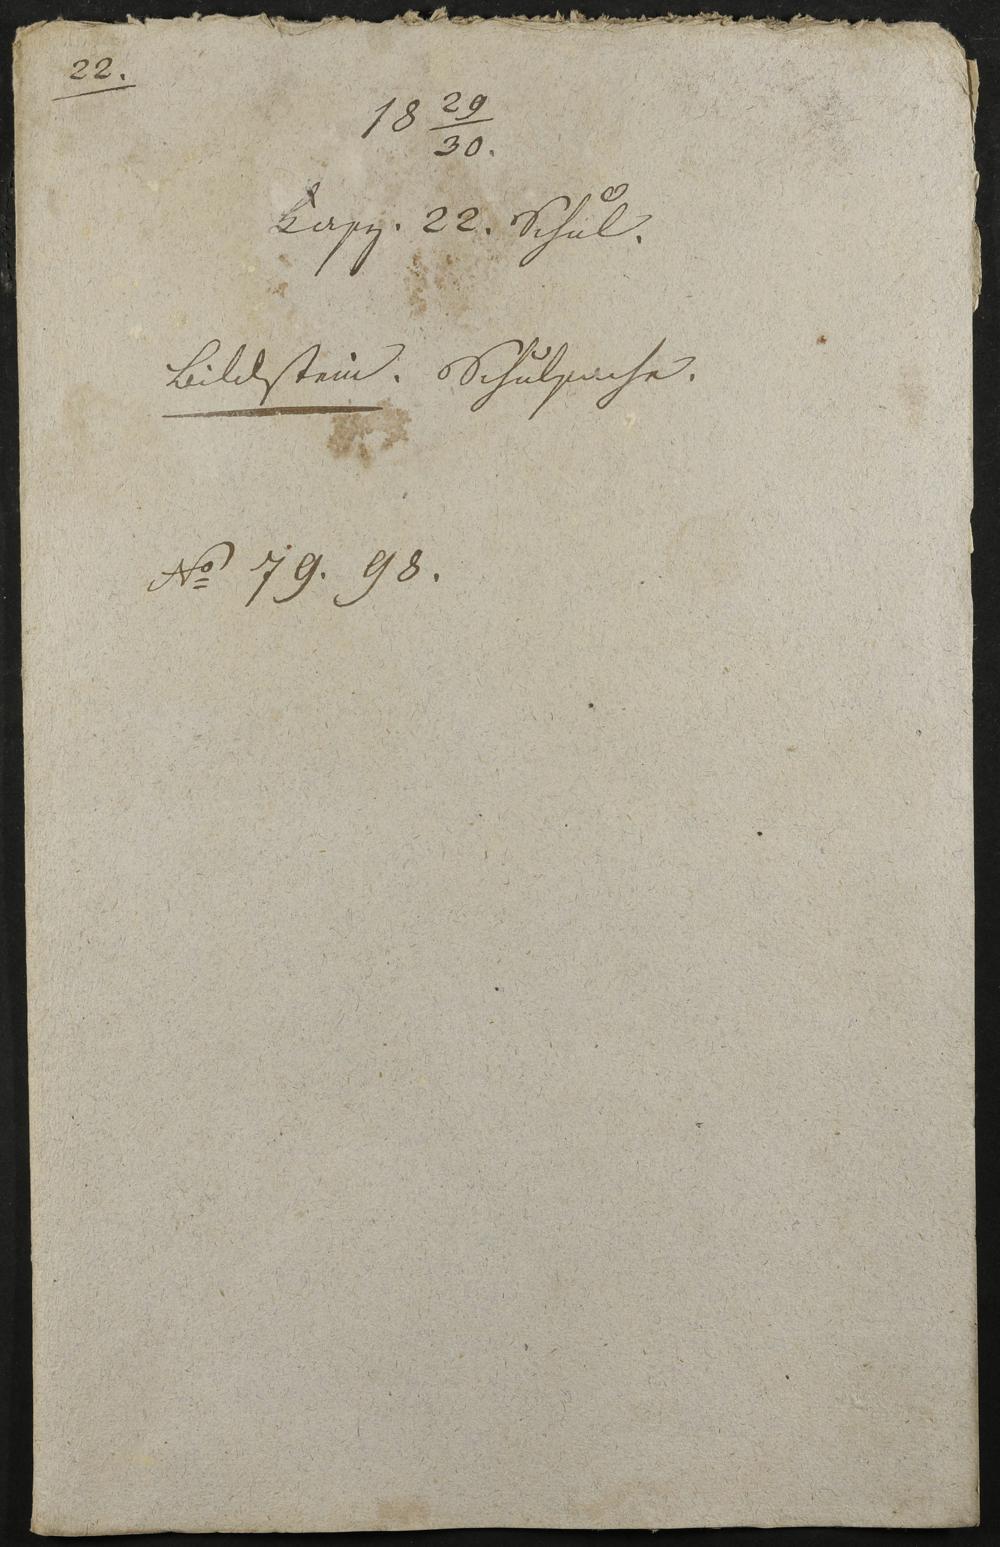 22.
18 29/30.
22. Schul.
Bildstein. Schulsache.
No 79. 98.